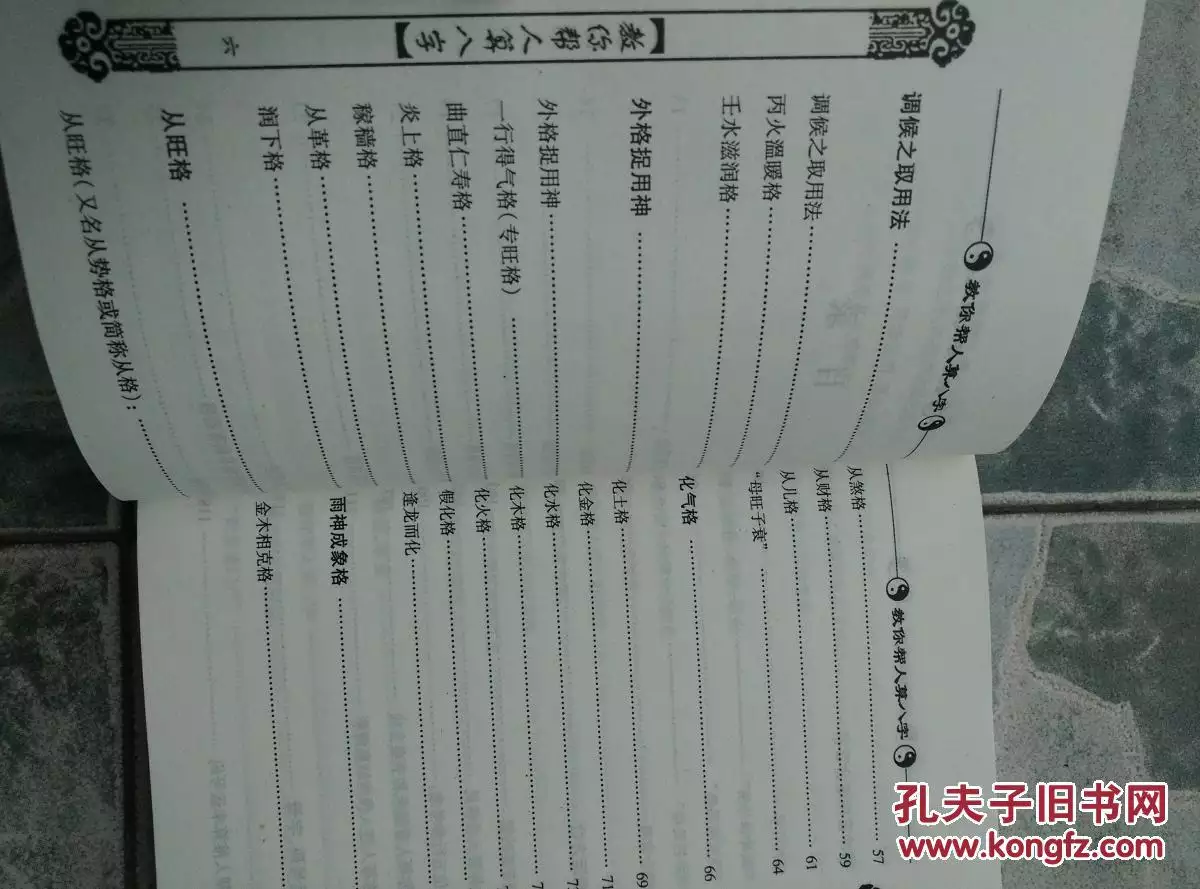 教你帮人算八字
调候之取用法
调候之取用法
丙火温暖格
壬水滋润格
外格捉用神
外格捉用神
一行得气格(专旺格)
曲直仁寿格
炎上格
稼穑格
从革格
润下格
从旺格
从旺格(又名从势格或简称从格):
【教你帮人算八字】
六
教你帮人算八字
从煞格 57
从财格 59
从儿格 61
“母旺子衰” 64
化气格 66
化土格 69
化金格 71
化水格
化木格
化火格
假化格
逢龙而化
雨神成象格
金木相克格
孔夫子旧书网
www.kongfz.com